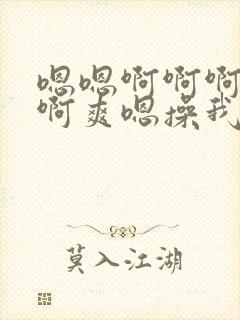 嗯嗯啊啊啊
啊爽嗯操我
莫入江湖